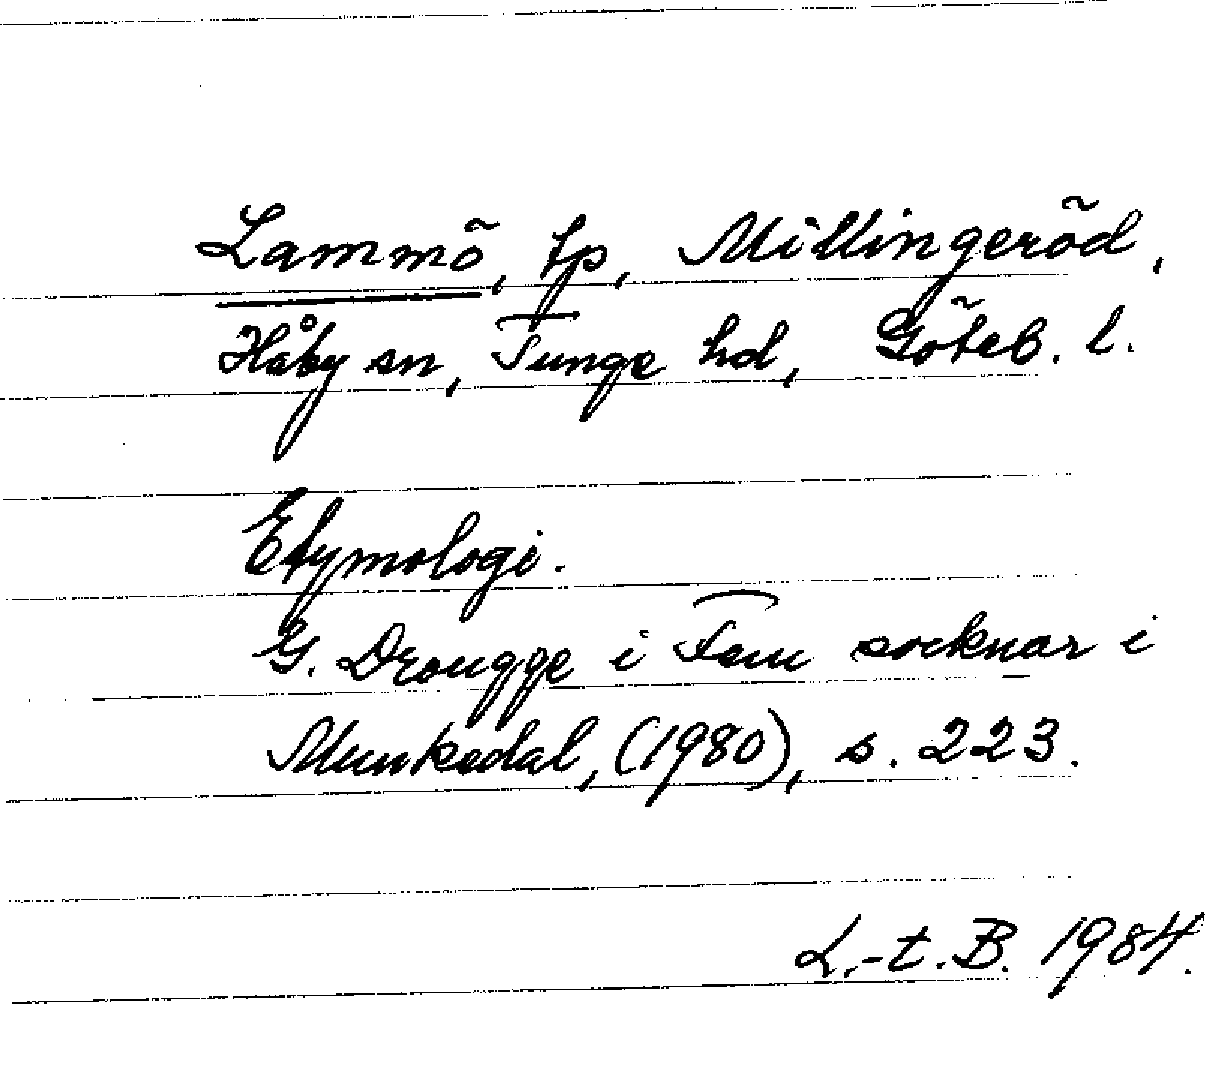 Lammö, tp, Millingeröd,
Håby sn, Tunge hd, Göteb. l.
Etymologi.
G. Drougge i Fem socknar i
Munkedal, (1980), s. 223.
L.-t. B. 1984.